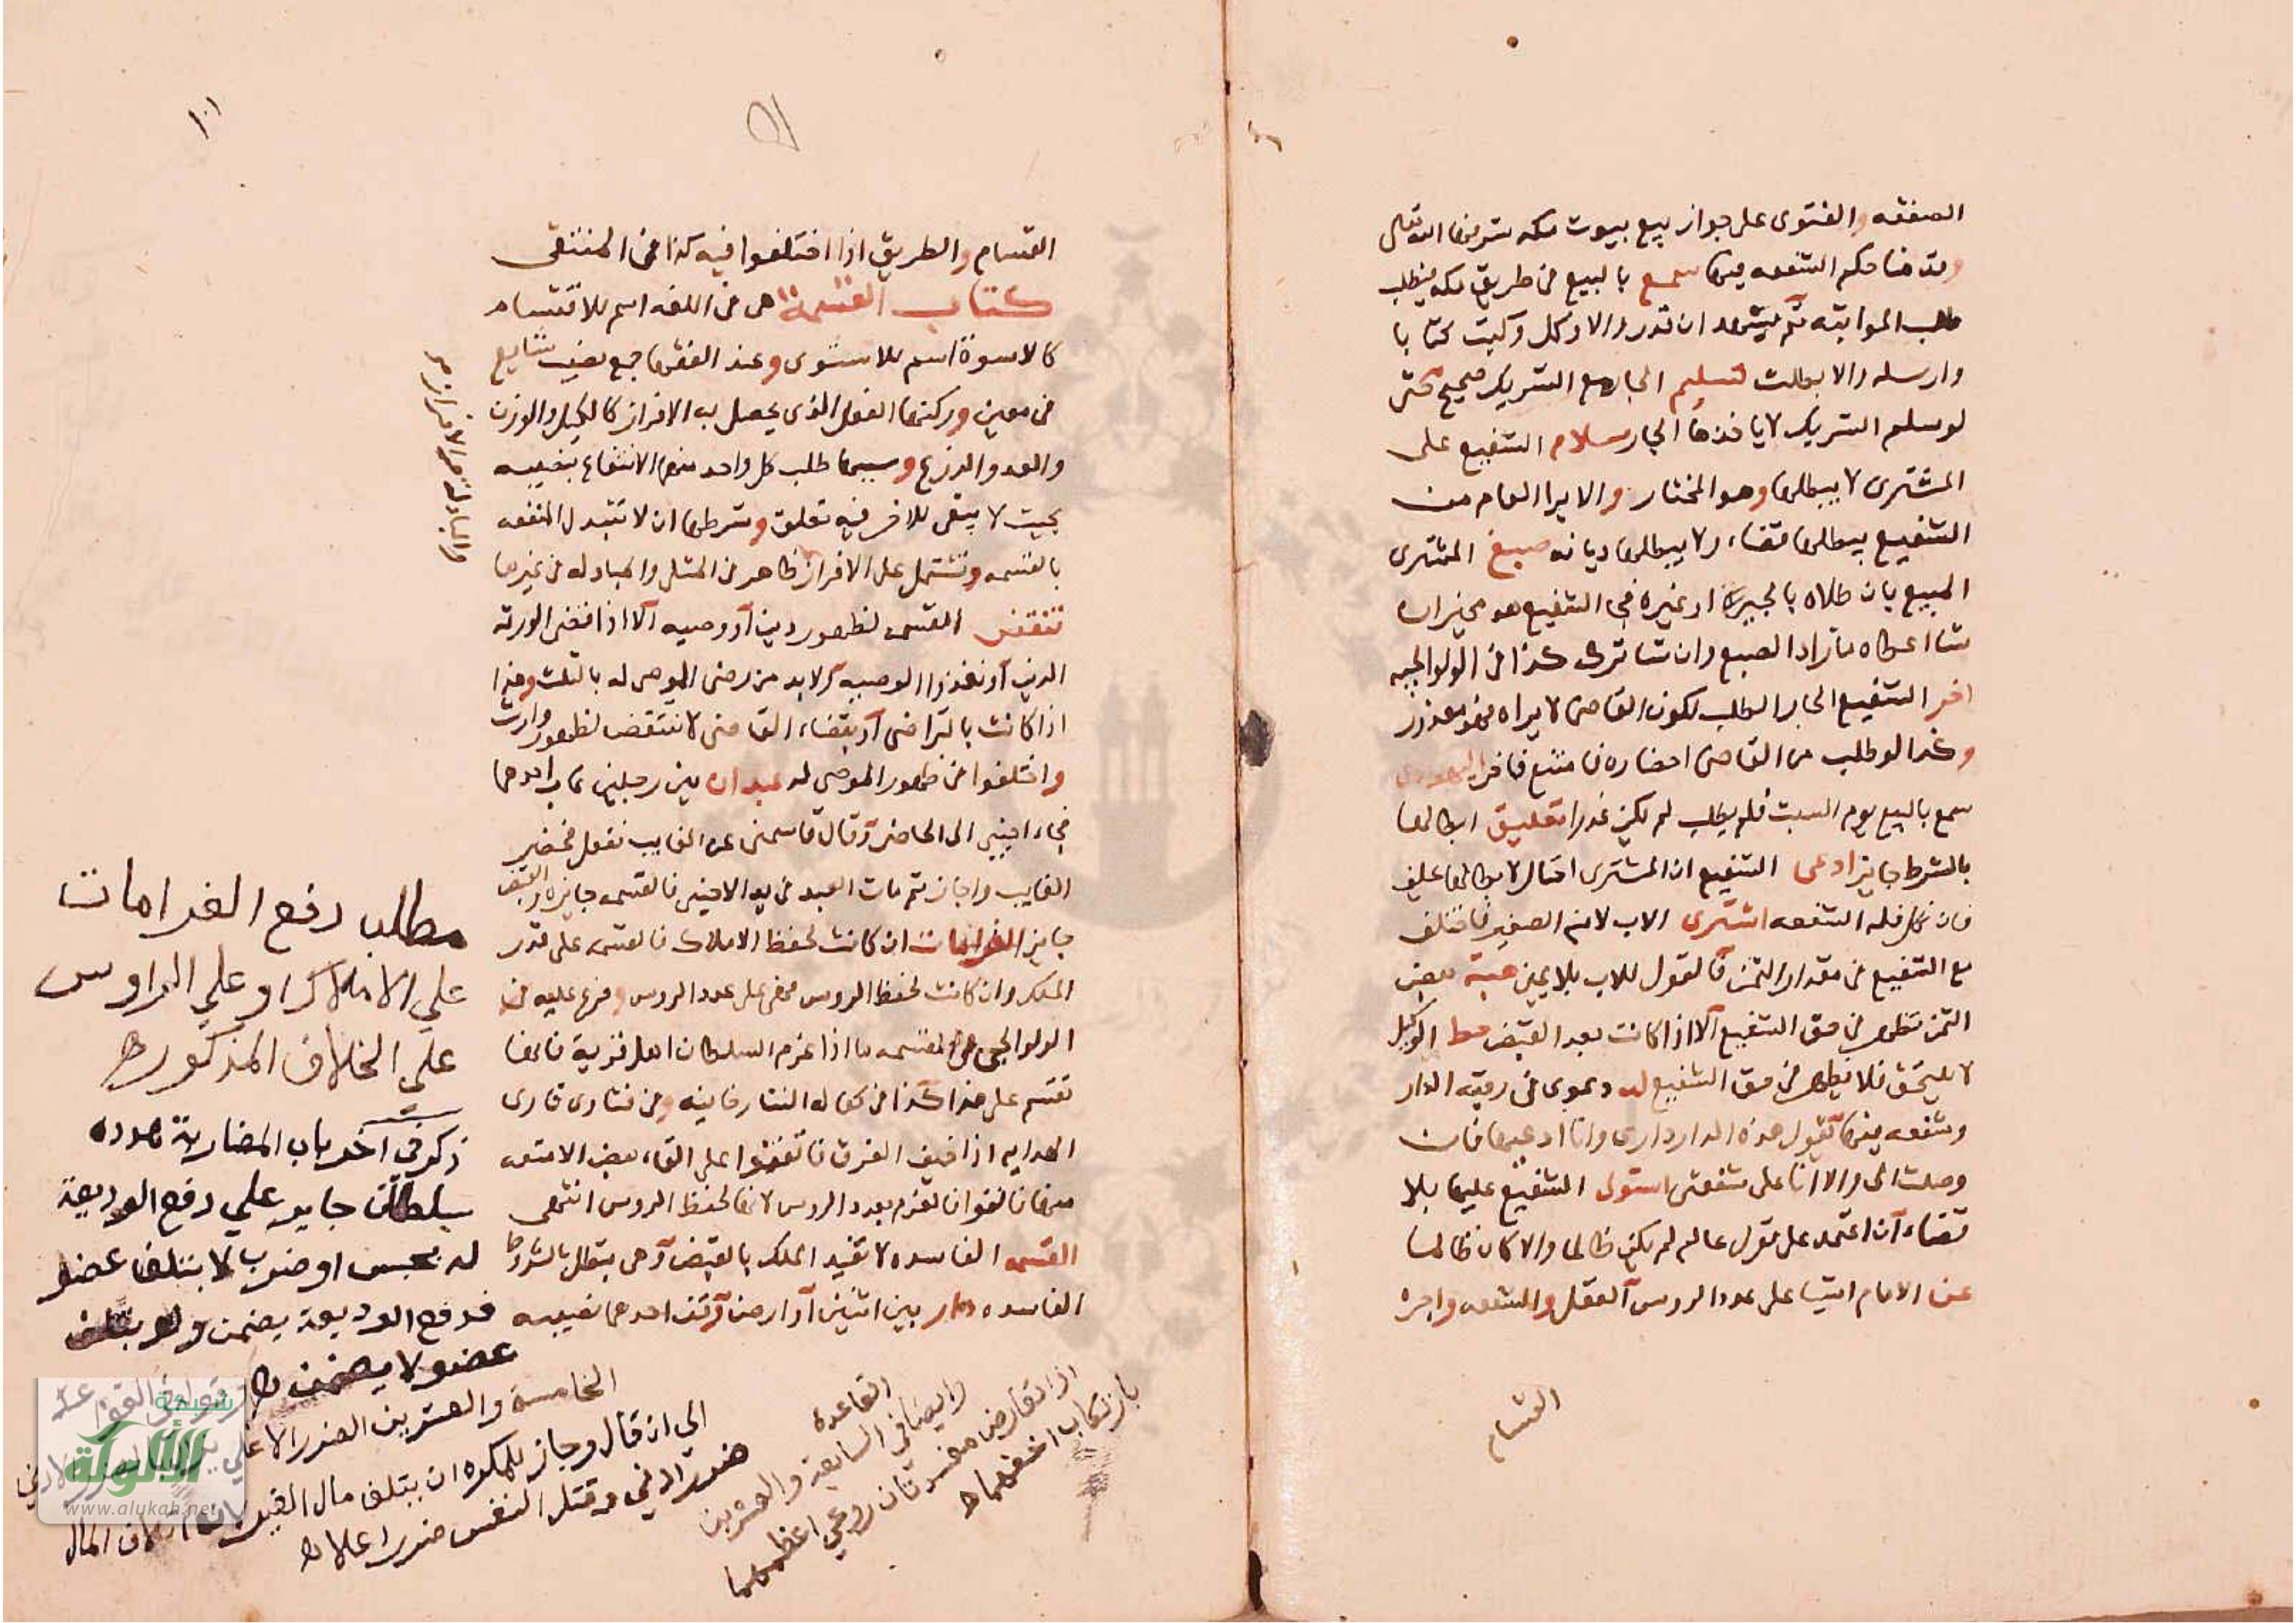 الصفقه والفتوى على جواز بيع بيوت مكه شرفها الله تعالى
وقدمنا حكم الشفعه فيها سمع بالبيع فى طريق مكه فيطلب
طلب المواثبه ثم يشهد ان قدر والا وكل او كتب كتابا
وارسله والا بطلت تسليم الجار مع الشريك صحيح حتى
لو سلم الشريك لا ياخذها الجار سلام الشفيع على
المشترى لا يبطلها وهو المختار والابرا العام من
الشفيع يبطلها قضاء ولا يبطلها ديانه صبغ المشترى
المبيع بان طلاه بالجبس او غيره فجا الشفيع هو مخير ان
شا اعطاه ما زاد الصبغ وان شا ترك كذا فى الولوالجيه
اخر الشفيع الجار الطلب لكون القاضى لا يراه فهو معذور
وكذا لو طلب من القاضى احضاره فامتنع فاخر اليهودى
سمع بالبيع يوم السبت فلم يطلب لم يكن عذرا تعليق ابطالها
بالشرط جايز ادعى الشفيع ان المشترى احتال لابطالها يحلف
فان نكل فله الشفعه اشترى الاب لابنه الصغير فاختلف
مع الشفيع فى مقدار الثمن فالقول للاب بلا يمين هبة بعض
الثمن تظهر فى حق الشفيع الا اذا كانت بعد القبض حط الوكيل
لا يلتحق فلا يظهر فى حق الشفيع له دعوى فى رقبه الدار
وشفعه فيها يقول هذه الدار دارى وانا ادعيها فان
وصلت الى والا انا على شفعتى استولى الشفيع عليها بلا
قضاء ان اعتمد على قول عالم لم يكن ظالما والا كان ظالما
عن الامام اشيا على عدد الروس العقل والشفعه واجره
القسام
١٠١
القسام والطريق اذا اختلفوا فيه كذا فى المنتقى
كتاب القسمة هى فى اللغه اسم للاقتسام
كالاسوة اسم للاستوى وعند الفقها جمع نصيب شايع
فى معين وركنها الفعل الذى يحصل به الافراز كالكيل والوزن
والعد والذرع وسببها طلب كل واحد منهم الانتفاع بنصيبه
بحيث لا يبقى للاخر فيه تعلق وشرطها ان لا تتبدل المنفعه
بالقسمه وتشتمل على الافراز ظاهر فى المثلى والمبادله فى غيرها
تنقض القسمه لظهور دين او وصيه الا اذا قضى الورثه
الدين او نفذوا الوصيه ولابد من رضى الموصى له بالثلث وهذا
اذا كانت بالتراضى او بقضاء القاضى لا تنتقض لظهور وارث
واختلفوا فى ظهور الموصى له عبدان بين رجلين غاب احدهما
فجاء اجنبى الى الحاضر وقال قاسمنى عن الغايب ففعل فحضر
الغايب واجاز ثم مات العبد فى يد الاجنبى فالقسمه جايزه والقبض
جايز الغرامات ان كانت لحفظ الاملاك فالقسمه على قدر
الملك وان كانت لحفظ الروس فهى على عدد الروس وفرع عليه فى
الولوالجى القسمه ما اذا غرم السلطان اهل قرية فانها
تقسم على هذا كذا فى كفاله التتارخانيه وفى فتاوى قارى
الهدايه اذا خيف الغرق فاتفقوا على القاء بعض الامتعه
منها فالقوا فالغرم بعدد الروس لانها لحفظ الروس انتهى
القسمه الفاسده لا تفيد الملك بالقبض وهى تبطل بالشروط
الفاسده دار بين اثنين او ارض وقف احدهما نصيبه
مطلب دفع الغرامات
على الاملاك او على الراوس
على الخلاف المذكور ه
ذكر فى اخر باب المضاربة
سلطان جاير على دفع الوديعة
له بحبس او ضرب لا بتلف عضو
فدفع الوديعة يضمن ولو بتلف
عضو لا يضمن ه
الخامسة والعشرين الضرر الا
الى ان قال وجاز للمكره ان يتلف مال الغير
ضرر ادنى وقتل النفس ضرر اعلا ه
القاعدة
وايضا فى السابعة والعشرين
اذا تعارض مفسدتان روعى اعظمهما
بارتكاب اخفهما ه
شبكة
الألوكة
www.alukah.net